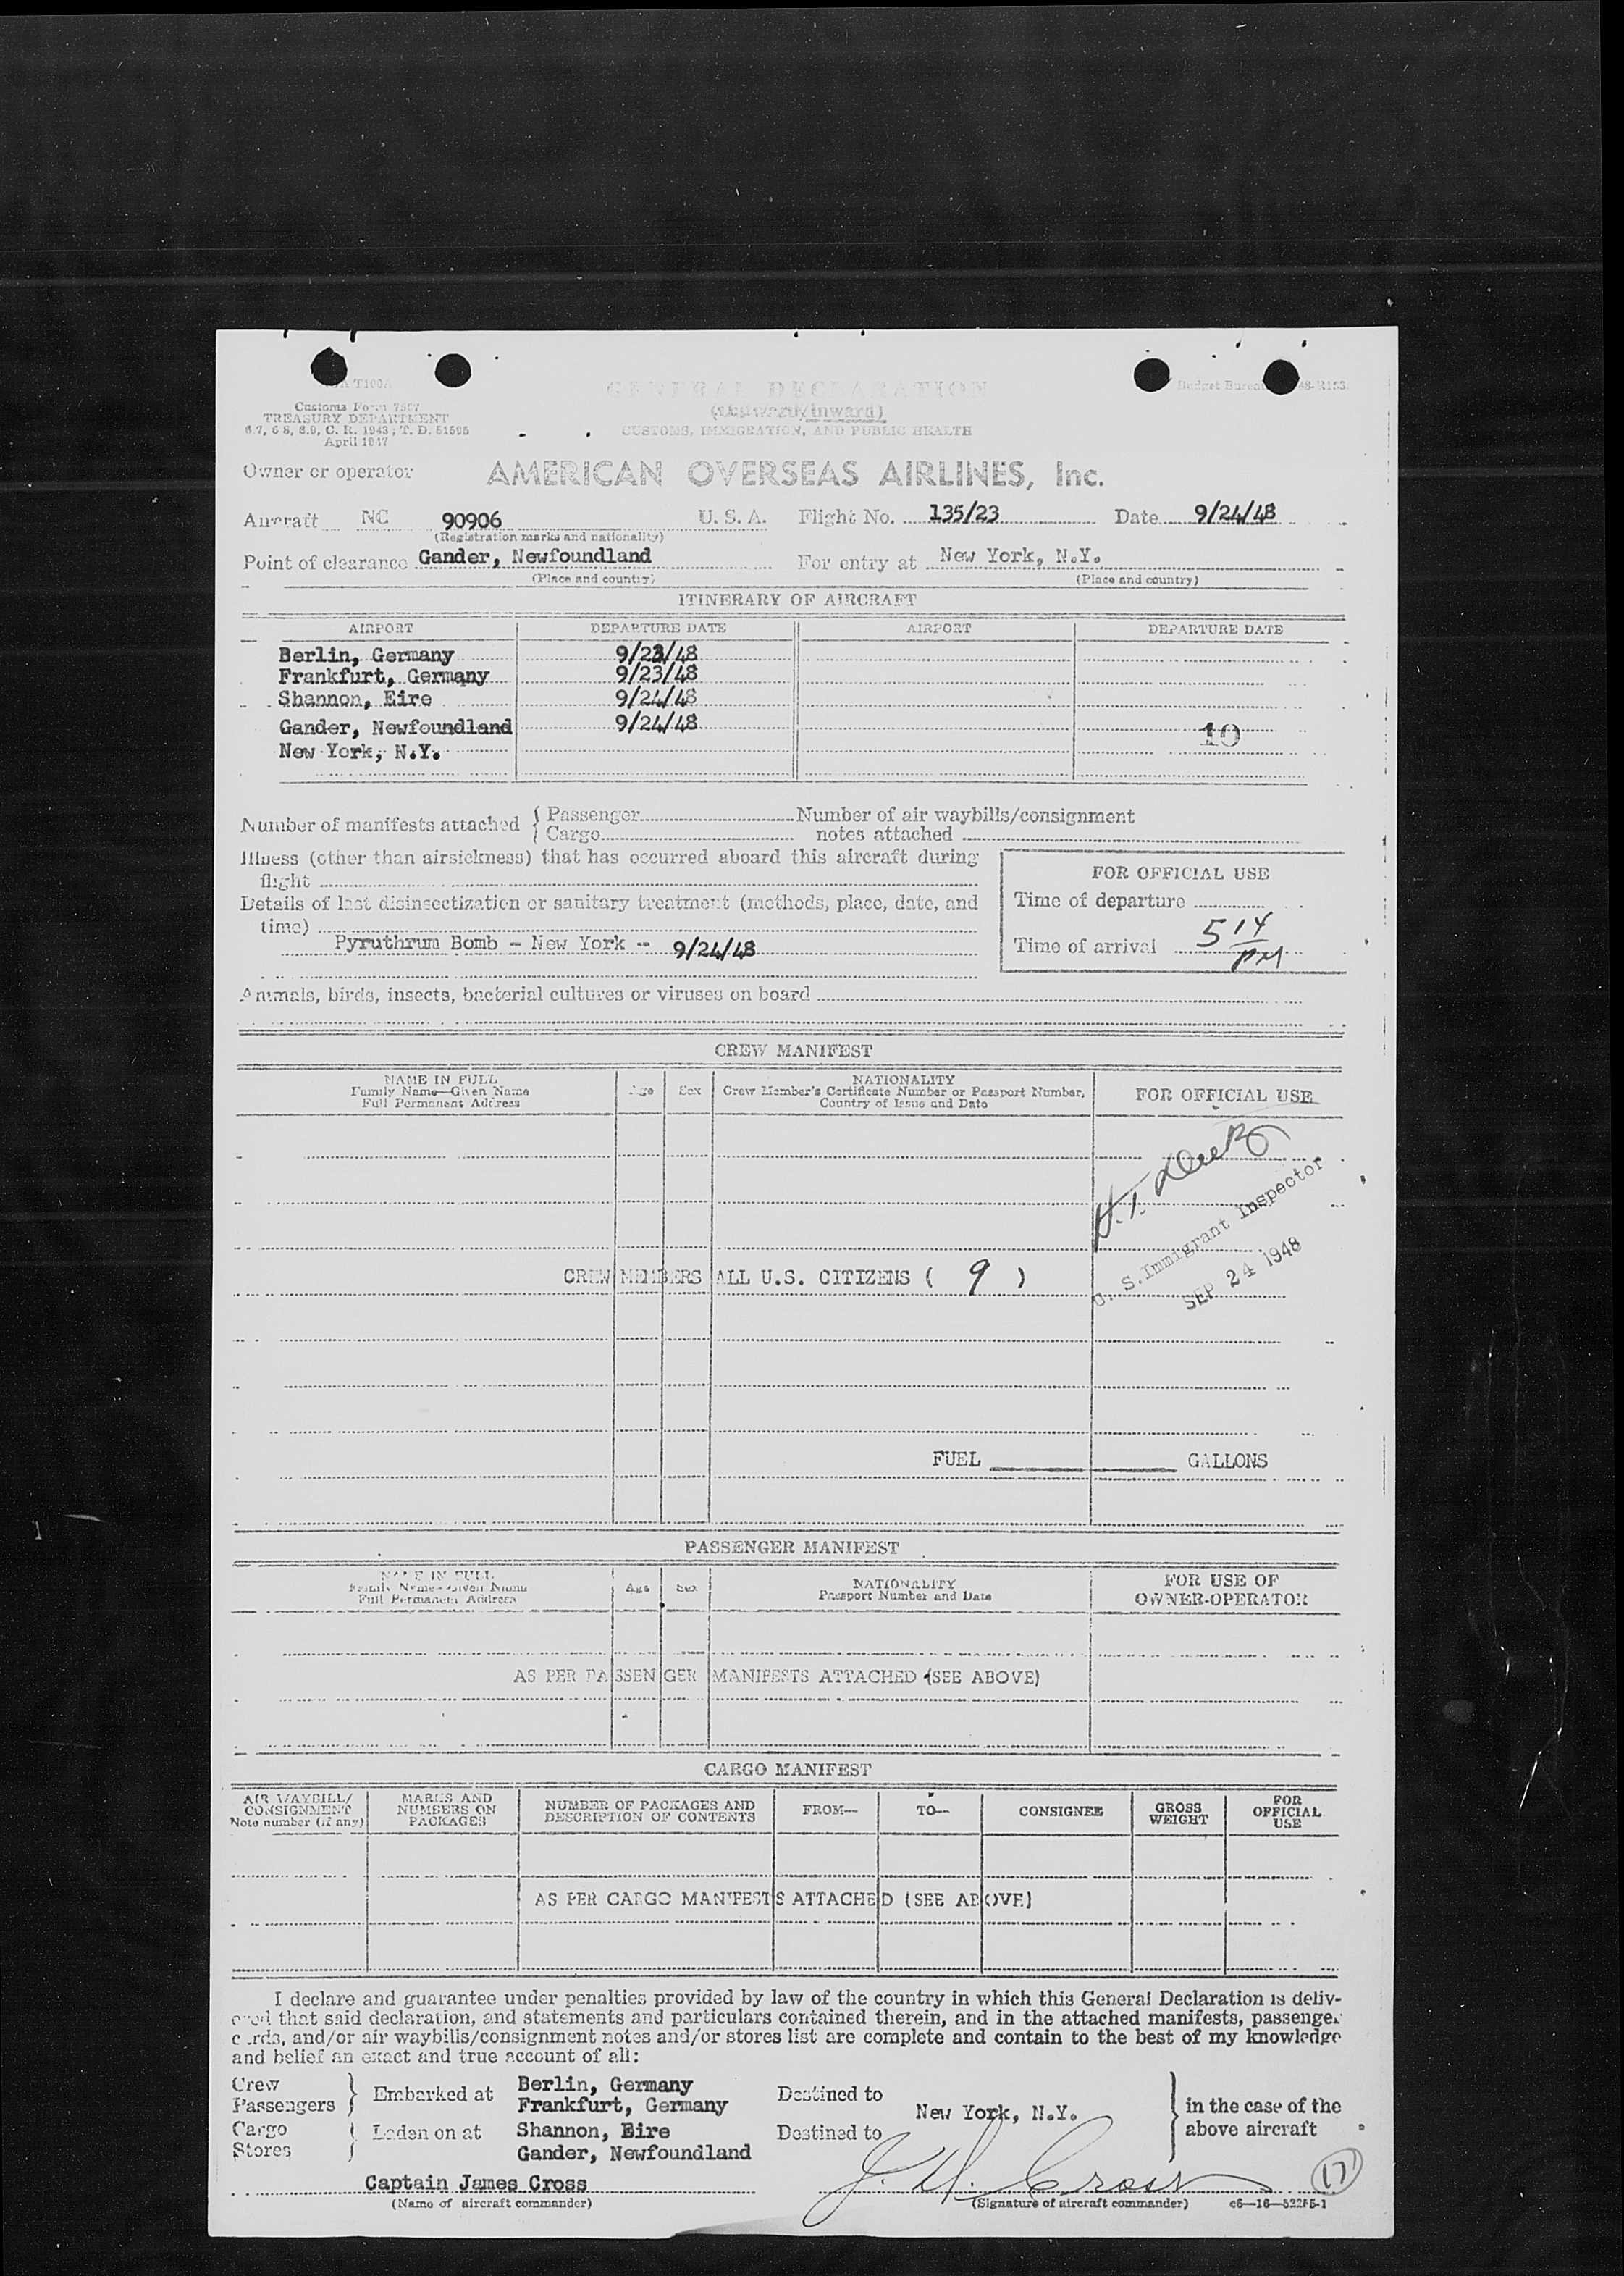 T100A
Customs Form 7507
TREASURY DEPARTMENT
6.7, 6.8, 6.9, C. R. 1943; T. D. 51595
April 1947
GENERAL DECLARATION
(Outward/Inward)
CUSTOMS, IMMIGRATION, AND PUBLIC HEALTH
Budget Bureau
Owner or operator AMERICAN OVERSEAS AIRLINES, Inc.
Aircraft NC 90906 U. S. A. Flight No. 135/23 Date 9/24/48
(Registration marks and nationality)
Point of clearance Gander, Newfoundland For entry at New York, N.Y.
(Place and country) (Place and country)
ITINERARY OF AIRCRAFT
AIRPORT DEPARTURE DATE AIRPORT DEPARTURE DATE
Berlin, Germany 9/23/48
Frankfurt, Germany 9/23/48
Shannon, Eire 9/24/48
Gander, Newfoundland 9/24/48 10
New York, N.Y.
Number of manifests attached { Passenger Number of air waybills/consignment
Cargo notes attached
Illness (other than airsickness) that has occurred aboard this aircraft during
flight
Details of last disinsectization or sanitary treatment (methods, place, date, and
time)
Pyruthrum Bomb - New York -- 9/24/48
FOR OFFICIAL USE
Time of departure
Time of arrival 5 14 PM
Animals, birds, insects, bacterial cultures or viruses on board
CREW MANIFEST
NAME IN FULL
Family Name—Given Name
Full Permanent Address
Age Sex
NATIONALITY
Crew Member's Certificate Number or Passport Number,
Country of Issue and Date
FOR OFFICIAL USE
U. S. Immigrant Inspector
SEP 24 1948
CREW MEMBERS ALL U.S. CITIZENS ( 9 )
FUEL GALLONS
PASSENGER MANIFEST
NAME IN FULL
Family Name—Given Name
Full Permanent Address
Age Sex
NATIONALITY
Passport Number and Date
FOR USE OF
OWNER-OPERATOR
AS PER PASSENGER MANIFESTS ATTACHED (SEE ABOVE)
CARGO MANIFEST
AIR WAYBILL/
CONSIGNMENT
Note number (if any)
MARKS AND
NUMBERS ON
PACKAGES
NUMBER OF PACKAGES AND
DESCRIPTION OF CONTENTS
FROM— TO— CONSIGNEE
GROSS
WEIGHT
FOR
OFFICIAL
USE
AS PER CARGO MANIFESTS ATTACHED (SEE ABOVE)
I declare and guarantee under penalties provided by law of the country in which this General Declaration is deliv-
ered that said declaration, and statements and particulars contained therein, and in the attached manifests, passenger
cards, and/or air waybills/consignment notes and/or stores list are complete and contain to the best of my knowledge
and belief an exact and true account of all:
Crew
Passengers } Embarked at Berlin, Germany
Frankfurt, Germany Destined to
New York, N.Y.
Cargo
Stores } Laden on at Shannon, Eire
Gander, Newfoundland Destined to
in the case of the
above aircraft
Captain James Cross J. H. Cross 17
(Name of aircraft commander) (Signature of aircraft commander)